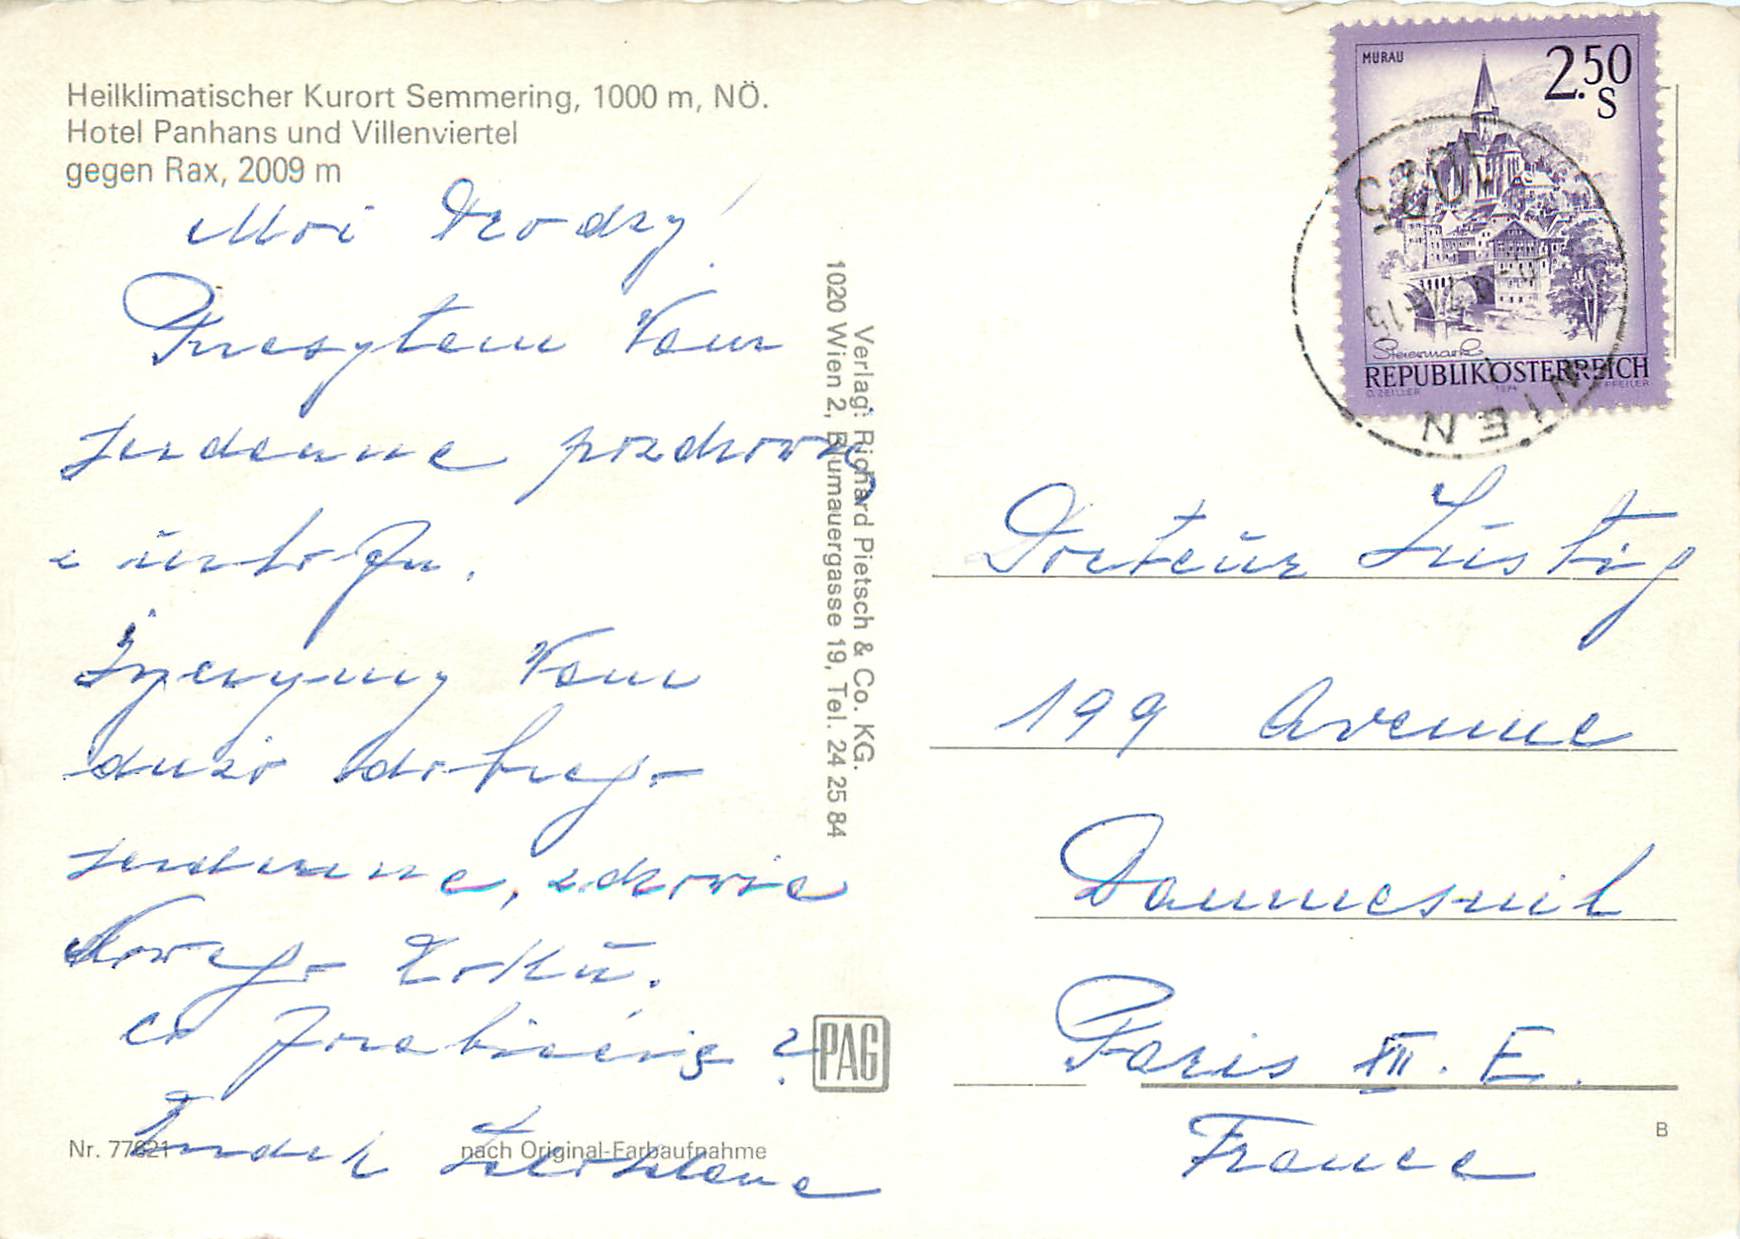 Heilklimatischer Kurort Semmering, 1000 m, NÖ.
Hotel Panhans und Villenviertel
gegen Rax, 2009 m
Moi Drodzy!
Przesyłam Wam
serdeczne pozdrowie
z urlopu.
Życzymy Wam
dużo dobrego
serdeczne, zdrowie
Nowego Roku.
co porabiacie?
Verlag: Richard Pietsch & Co. KG.
1020 Wien 2, Blumauergasse 19, Tel. 24 25 84
PAG
Nr. 77621
nach Original-Farbaufnahme
MURAU
2.50
S
Steiermark
REPUBLIK ÖSTERREICH
O. ZEILLER
1974
PFEILER
1025
WIEN
Docteur Lustig
199 Avenue
Daumesnil
Paris XII. E.
France
B